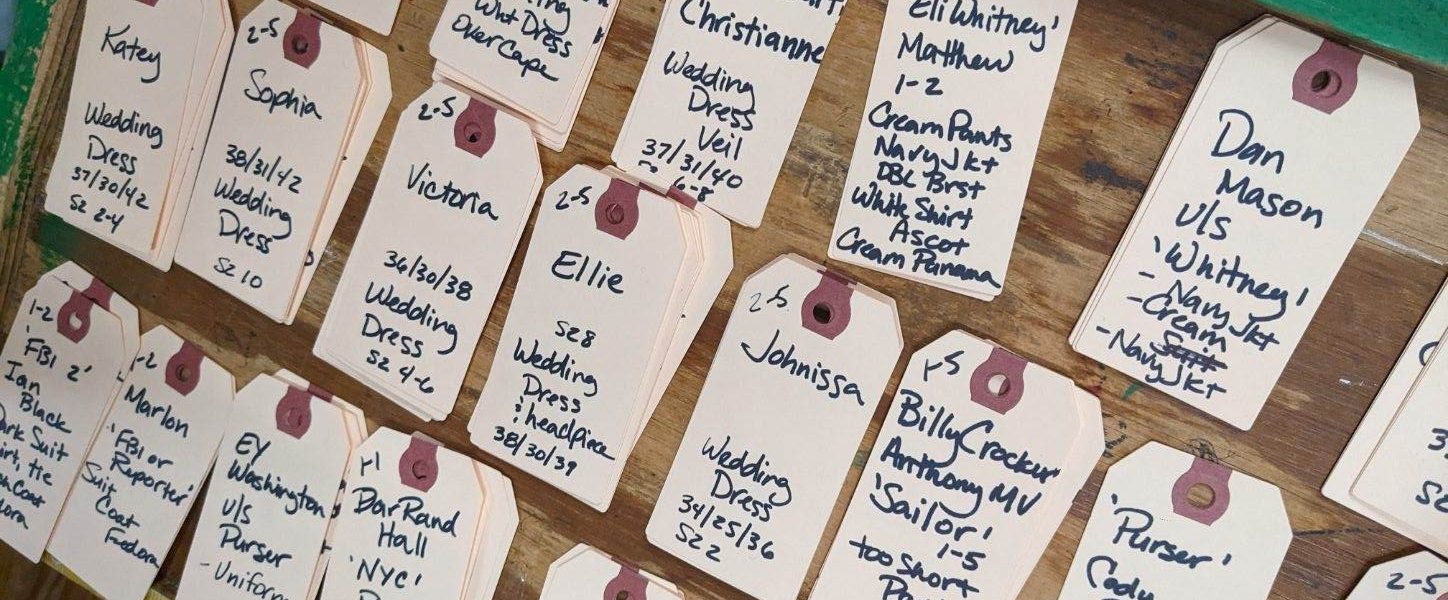 Katey
Wedding
Dress
37/30/42
Sz 2-4
2-5
Sophia
38/31/42
Wedding
Dress
Sz 10
Wht Dress
Over Cape
2-5
Victoria
36/30/38
Wedding
Dress
Sz 4-6
Christianne
Wedding
Dress
Veil
37/31/40
6-8
2-5
Ellie
Sz 8
Wedding
Dress
& headpiece
38/30/39
Eli Whitney'
Matthew
1-2
Cream Pants
Navy Jkt
DBL Brst
White Shirt
Ascot
Cream Panama
Dan
Mason
U/S
'Whitney'
- Navy Jkt
- Cream
Suit
- Navy Jkt
1-2
'FBI 2'
Ian
Black
Dark Suit
-2
Marlon
'FBI or
Reporter'
Suit
Coat
Fedora
EY
Washington
U/S
Purser
- Uniform
DarRand
Hall
'NYC'
2-5
Johnissa
Wedding
Dress
34/25/36
Sz 2
1-5
Billy Crocker
Anthony MV
'Sailor'
1-5
too short
'Purser'
Cody
2-5